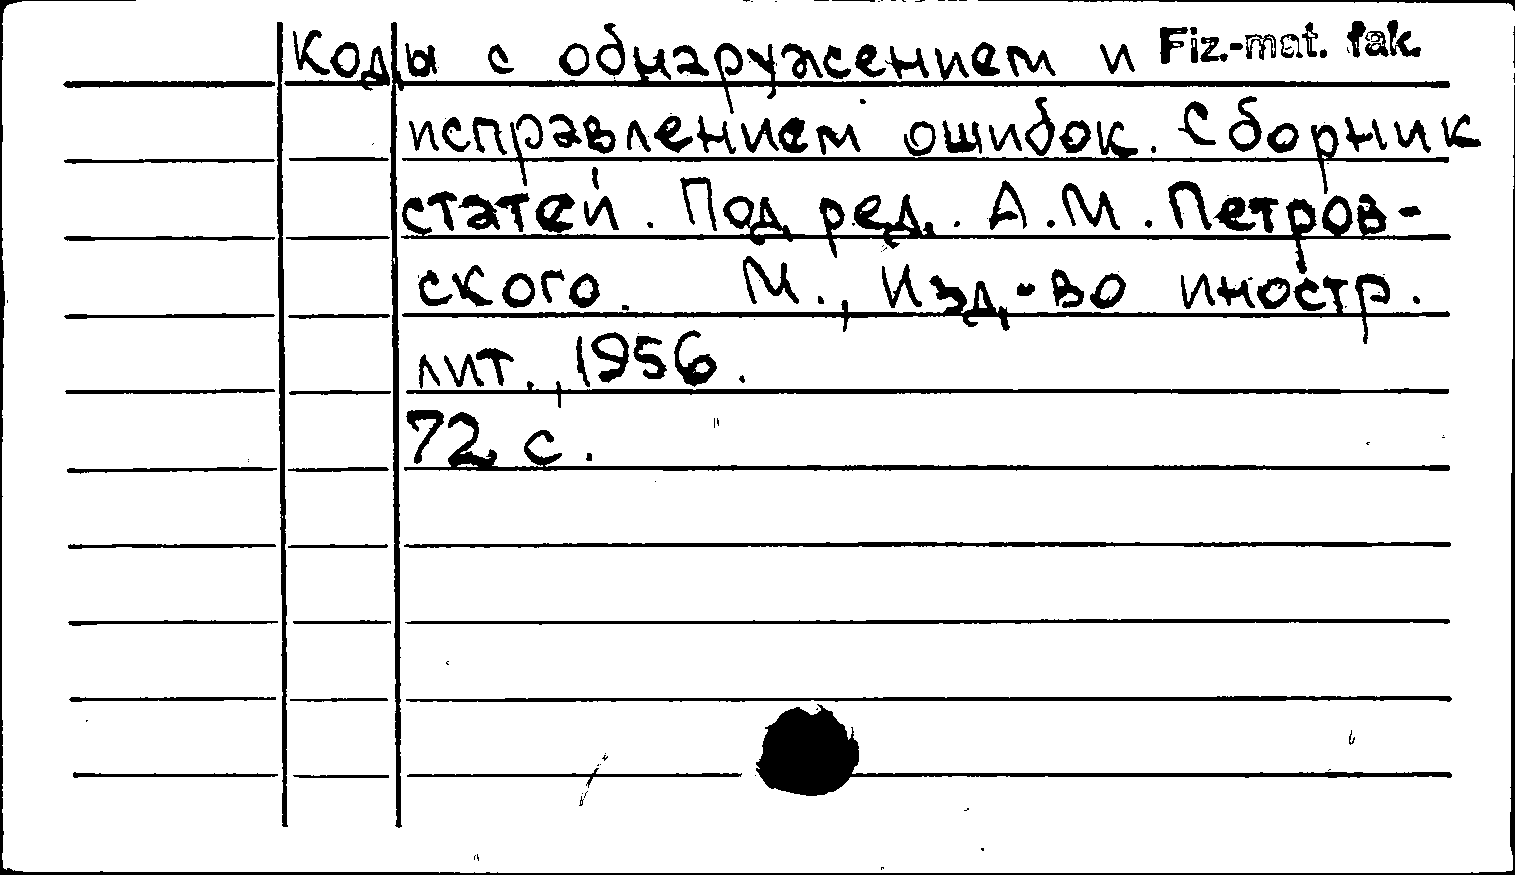 Коды с обнаружением и Fiz.-mat. fak.
исправлением ошибок. Сборник
статей. Под ред. А.М. Петров-
ского. М., Изд-во иностр.
лит., 1956.
72 с.